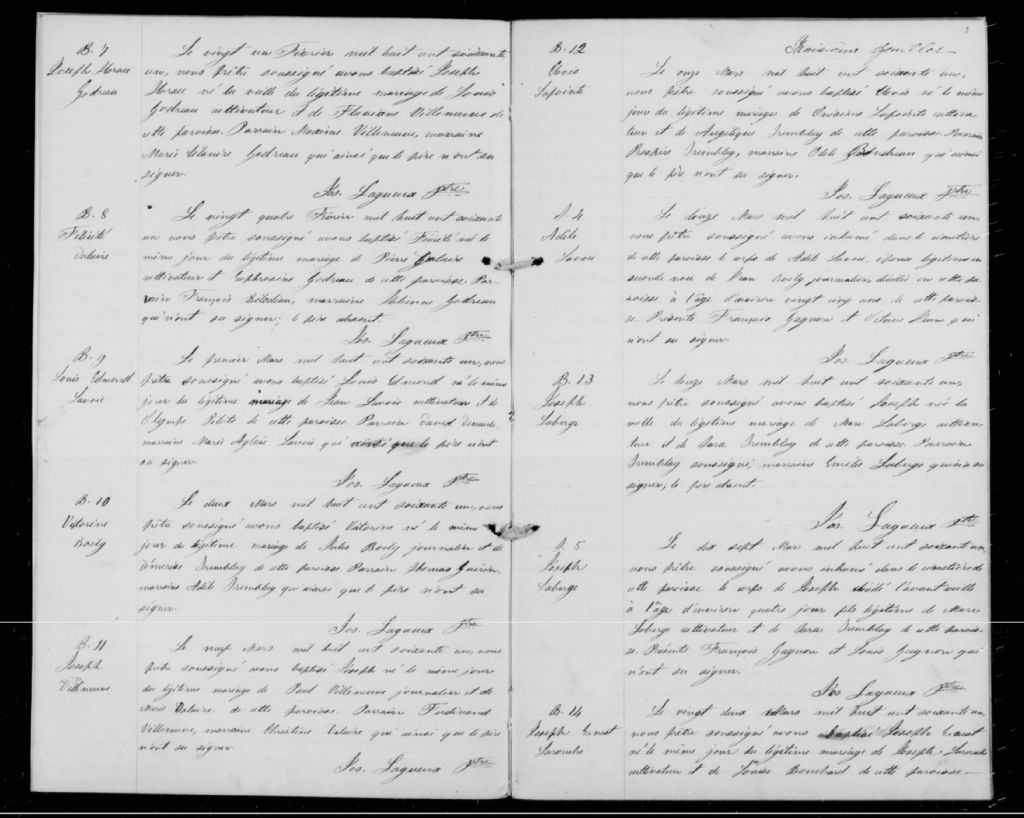 B. 7
Joseph Horace
Godreau
Le vingt un Février mil huit cent soixante
un, nous prêtre soussigné avons baptisé Joseph
Horace né la veille du légitime mariage de Louis
Godreau cultivateur et de Flavienne Villeneuve de
cette paroisse. Parrain Maxime Villeneuve, marraine
Marie Godreau qui ainsi que le père n'ont su
signer.
Jos. Lagueux Ptre
B. 8
Félicité
Dalaire
Le vingt quatre Février mil huit cent soixante
un nous prêtre soussigné avons baptisé Félicité née le
même jour du légitime mariage de Pierre Dalaire
cultivateur et Euphrosine Godreau de cette paroisse. Par-
rain François Bilodeau, marraine Julienne Godreau
qui n'ont su signer; le père absent.
Jos. Lagueux Ptre
B. 9
Louis Edmond
Savoie
Le premier Mars mil huit cent soixante un, nous
prêtre soussigné avons baptisé Louis Edmond né le même
jour du légitime mariage de Jean Savoie cultivateur et de
Olympe Pilote de cette paroisse. Parrain David
marraine Marie Aglaé Savoie qui ainsi que le père n'ont
su signer.
Jos. Lagueux Ptre
B. 10
Victorine
Boily
Le deux Mars mil huit cent soixante un, nous
prêtre soussigné avons baptisé Victorine né le même
jour du légitime mariage de Jules Boily journalier et de
Démerise Tremblay de cette paroisse. Parrain Thomas
marraine Adèle Tremblay qui ainsi que le père n'ont su
signer.
Jos. Lagueux Ptre
B. 11
Joseph
Villeneuve
Le neuf Mars mil huit cent soixante un, nous
prêtre soussigné avons baptisé Joseph né le même jour
du légitime mariage de Paul Villeneuve journalier et de
Marie Dalaire de cette paroisse. Parrain Ferdinand
Villeneuve, marraine Christine Dalaire qui ainsi que le père
n'ont su signer.
Jos. Lagueux Ptre
3
Troisième feuillet
B. 12
Clovis
Lapointe
Le onze Mars mil huit cent soixante un,
nous prêtre soussigné avons baptisé Clovis né le même
jour du légitime mariage de Lapointe cultiva-
teur et de Angélique Tremblay de cette paroisse. Parrain
Prospère Tremblay, marraine Odile qui ainsi
que le père n'ont su signer.
Jos. Lagueux Ptre
S. 4
Adèle
Savoie
Le douze Mars mil huit cent soixante un,
nous prêtre soussigné avons inhumé dans le cimetière
de cette paroisse le corps de Adèle Savoie, épouse légitime en
seconde noce de Jean Boily journalier, décédée en cette pa-
roisse à l'âge d'environ vingt cinq ans de cette parois-
se. Présents François Gagnon et qui
n'ont su signer.
Jos. Lagueux Ptre
B. 13
Joseph
Laberge
Le douze Mars mil huit cent soixante un,
nous prêtre soussigné avons baptisé Joseph né la
veille du légitime mariage de Marc Laberge cultiva-
teur et de Sara Tremblay de cette paroisse. Parrain
Tremblay soussigné; marraine Emélie Laberge qui n'a su
signer; le père absent.
Jos. Lagueux Ptre
S. 5
Joseph
Laberge
Le dix sept Mars mil huit cent soixante un,
nous prêtre soussigné avons inhumé dans le cimetière de
cette paroisse le corps de Joseph décédé l'avant veille
à l'âge d'environ quatre jours fils légitime de Marc
Laberge cultivateur et de Sara Tremblay de cette parois-
se. Présents François Gagnon et Louis Gagnon qui
n'ont su signer.
Jos. Lagueux Ptre
B. 14
Joseph Ernest
Larouche
Le vingt deux Mars mil huit cent soixante un,
nous prêtre soussigné avons baptisé Joseph Ernest
né le même jour du légitime mariage de Joseph Larouche
cultivateur et de Louise Bouchard de cette paroisse